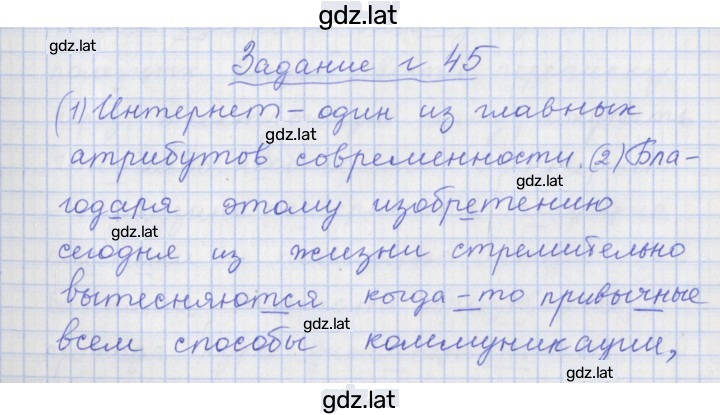 gdz.lat
gdz.lat
Задание г 45
(1) Интернет – один из главных
gdz.lat
атрибутов современности. (2) Бла-
gdz.lat
годаря этому изобретению
gdz.lat
сегодня из жизни стремительно
вытесняются когда-то привычные
gdz.lat
всем способы коммуникации,
gdz.lat
gdz.lat